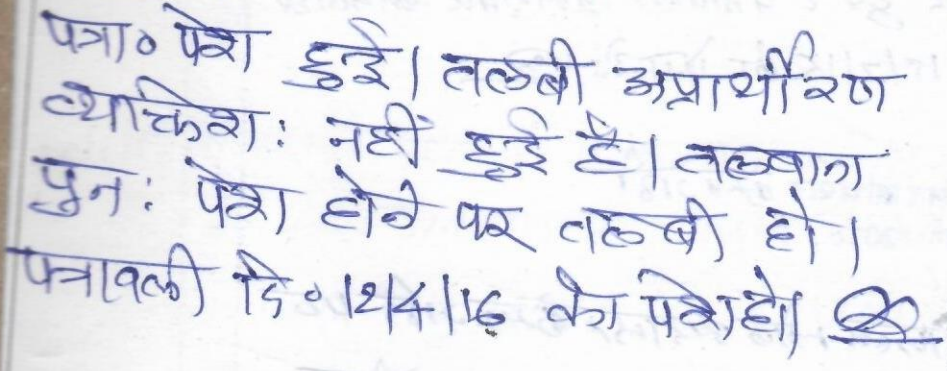 पत्रा० पेश हुई। तलबी अप्रार्थीगण
व्यक्तिशः नहीं हुई है। तलबाना
पुनः पेश होने पर तलबी हो।
पत्रावली दि० 12/4/16 को पेश हो।